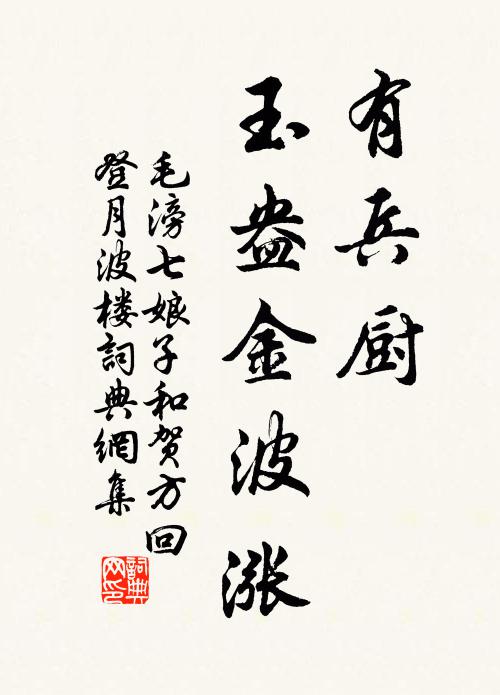 有兵厨
玉盎金波涨
毛滂七娘子和贺方回
登月波楼词典網集
詞典网印